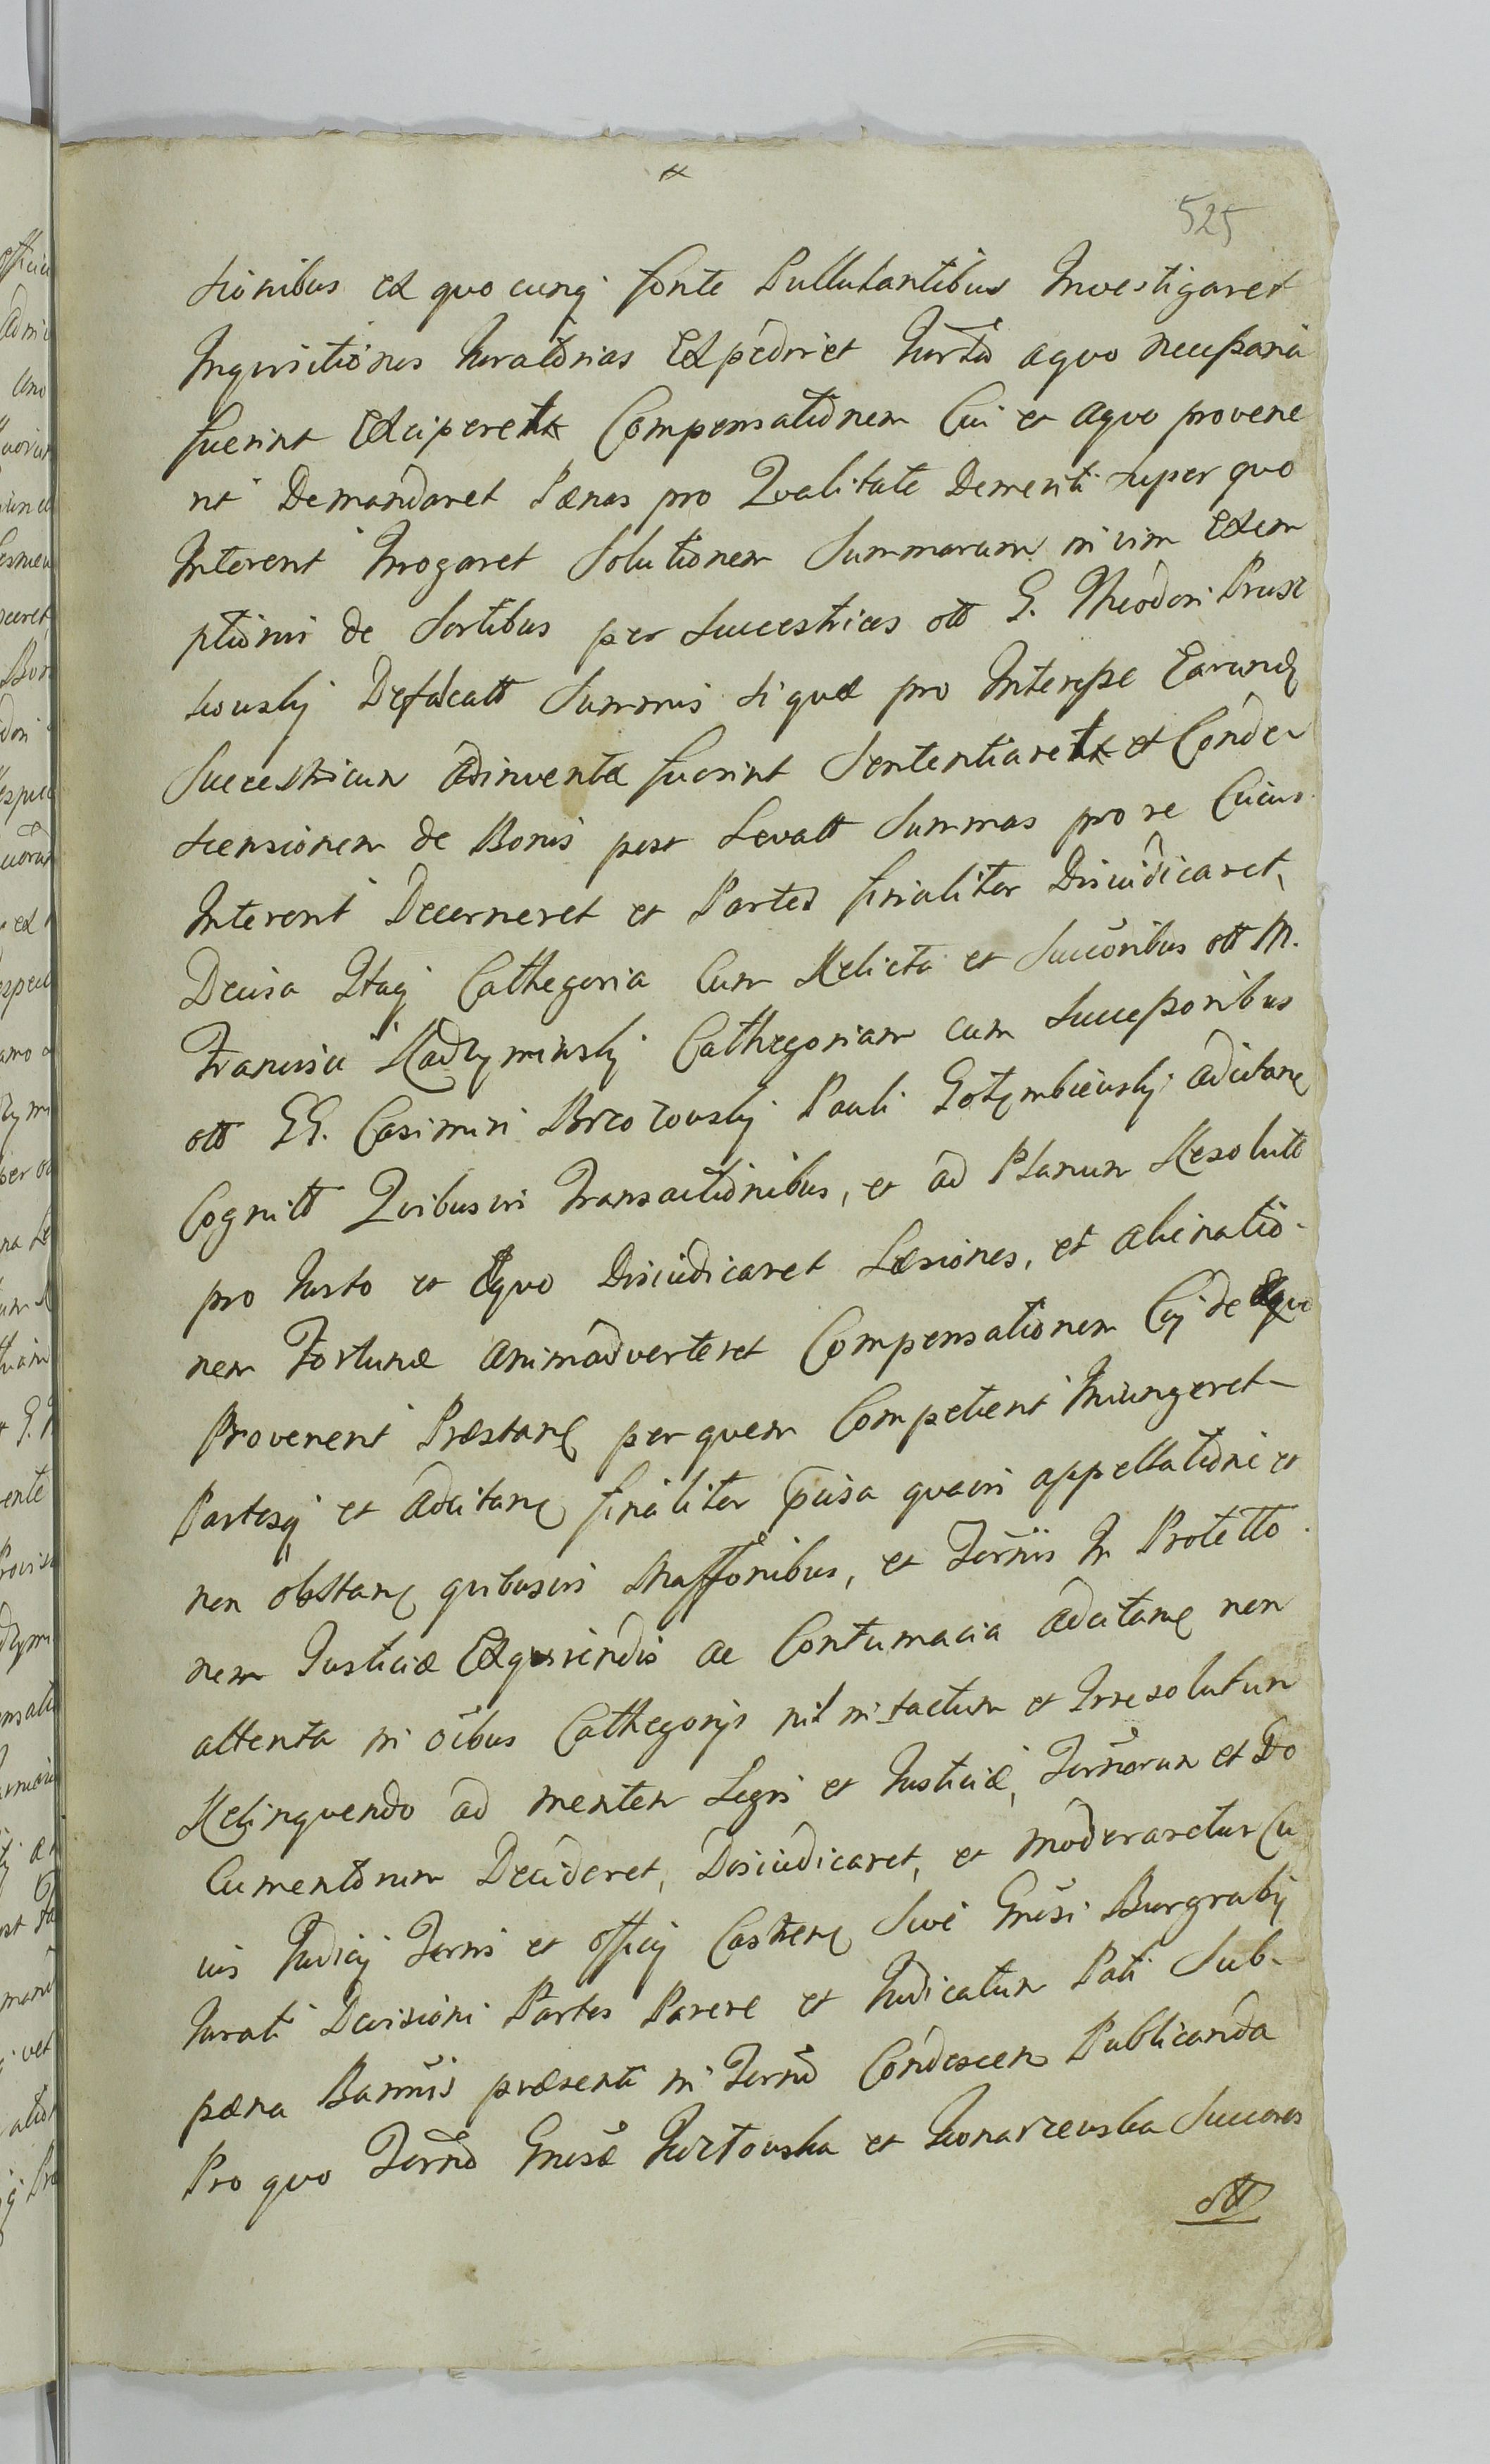 525
sionibus ex quo cunq fonte Pullulantibus Investigaret
Inquisitiones Juratorias Expediret Jurta aquo necessaria
fuerint Exciperet Compensationem Cui et aquo provene
rit Demandaret Pænas pro Qualitate Demeriti super quo
Intererit Irrogaret Solutionem Summarum in vim Exem
ptionis de Sortibus per Succestrices ott G. Theodori Prusz
kouskij Defalcatt Summis si quæ pro Interesse Earundq
Succestricum adinventæ fuerint Sententiaret et Conde
scensionem de Bonis post Levatt Summas pro re Cuius
Intererit Decerneret et Partes finaliter Disiudicaret,
Decisa Itaq Cathegoria Cum Relicta et Succoribus ott M.
Francisci Radzyminskij Cathegoriam cum Successoribus
ott GG. Casimiri Brzozouskij Pauli Gołembieuskij adcitanq
Cognitt Quibusvis Transactionibus, et ad Planum Resolutt
pro Justo et Æquo Disiudicaret Læsiones, et alienatio-
nem Fortunæ animadverteret Compensationem Cuj de Æquo
Provenerit Præstanq per quem Competierit Iniungeret
Partesq et adcitanq finaliter præcisa quavis appellatione et
non obstanq quibusvis Naffonibus, et Termis In Protectio
nem Justiciæ Exquirendis ac Contumacia adcitanq non
attenta in oibus Cathegorijs nil intactum et Irresolutum
Relinquendo ad mentem Legis et Justiciæ, Termorum et Do
Cumentorum Decideret, Disiudicaret, et Moderaretur Cu
ius Judicij Termi et officij Castrenq Sive Gnosi Burgrabij
Jurati Decisioni Partes Parere et Judicatum Pati Sub-
pæna Bannis præsenti in Termo Condescen Publicanda
Pro quo Termo Gnosæ et Succores
ott